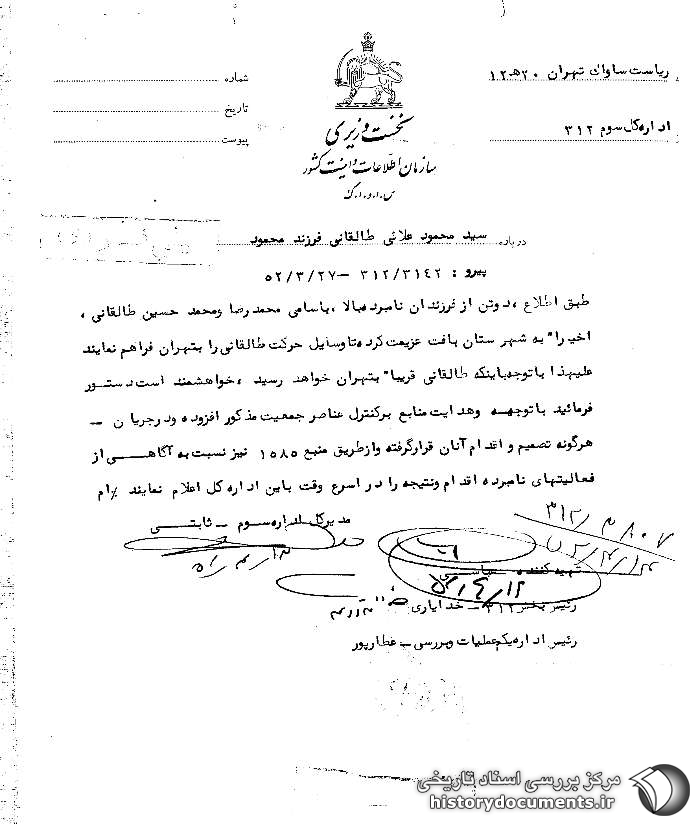 ریاست ساواک تهران ۲۰ ه‍ ۱۲
اداره کل سوم ۳۱۲
نخست وزیری
سازمان اطلاعات و امنیت کشور
س.ا.و.ا.ک
شماره
تاریخ
پیوست
درباره سید محمود علائی طالقانی فرزند محمود
پیرو : ۳۱۲/۳۱۴۲ – ۵۲/۳/۲۷
طبق اطلاع ، دوتن از فرزندان نامبرده بالا ، باسامی محمد رضا ومحمد حسین طالقانی ،
اخیرا" به شهرستان بافت عزیمت کرده تا وسایل حرکت طالقانی را بتهران فراهم نمایند
علیهذا با توجه باینکه طالقانی قریبا" بتهران خواهد رسید ، خواهشمند است دستور
فرمائید با توجه وهدایت منابع برکنترل عناصر جمعیت مذکور افزوده ودرجریان –
هرگونه تصمیم و اقدام آنان قرارگرفته وازطریق منبع ۱۵۸۵ نیز نسبت به آگاهی از
فعالیتهای نامبرده اقدام ونتیجه را در اسرع وقت باین اداره کل اعلام نمایند /ام
مدیرکل اداره سوم – ثابتی
۳۱۲/۳۸۰۷
تهیه کننده
۵۲/۴/۱۲
رئیس بخش ۳۱۲ – خدایاری
رئیس اداره یکم عملیات وبررسی – عطارپور
مرکز بررسی اسناد تاریخی
historydocuments.ir